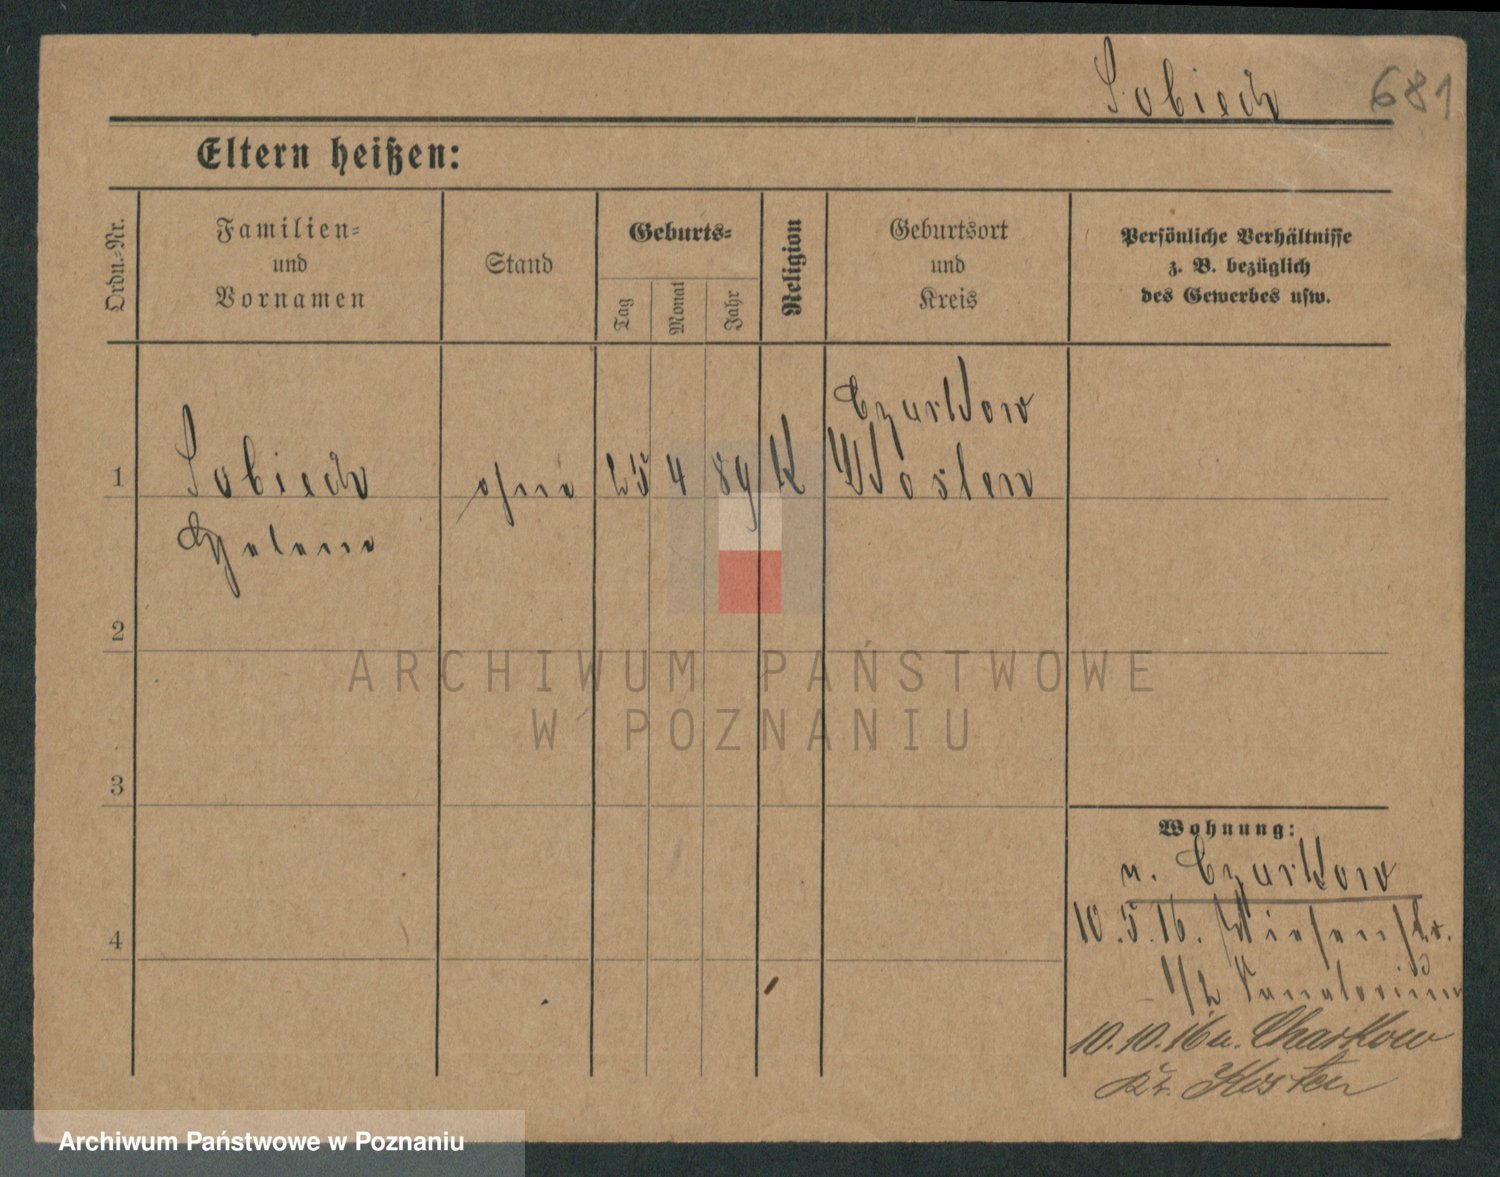 Sobiech 681
Eltern heißen:
Ordn.-Nr.
Familien-
und
Vornamen
Stand
Geburts-
Tag
Monat
Jahr
Religion
Geburtsort
und
Kreis
Persönliche Verhältnisse
z. B. bezüglich
des Gewerbes usw.
Czarkow
1 Sobiech ohne 25 4 89 K Kosten
Helene
2
ARCHIWUM PAŃSTWOWE
W POZNANIU
3
Wohnung:
n. Czarkow
10.5.16. Wiesenstr.
1/2 Sanatorium
4
10.10.16 n. Charkow
Kr. Kosten
Archiwum Państwowe w Poznaniu